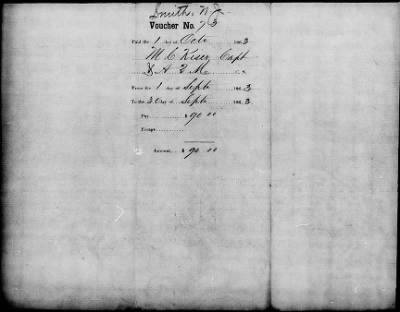 Smith, W J
Voucher No. 73
Paid the 1 day of Octr 1863
M C Kiser Capt
& A. Q. M.
From the 1 day of Septr 1863
To the 30 day of Septr 1863
Pay $90 00
Forage
Amount $90 00